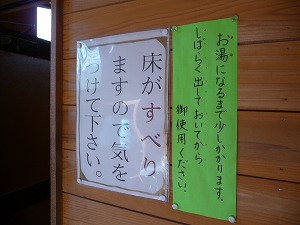 お湯になるまで少しかかります。
しばらく出しておいてから、
御使用ください。
床がすべり
ますので気を
つけて下さい。